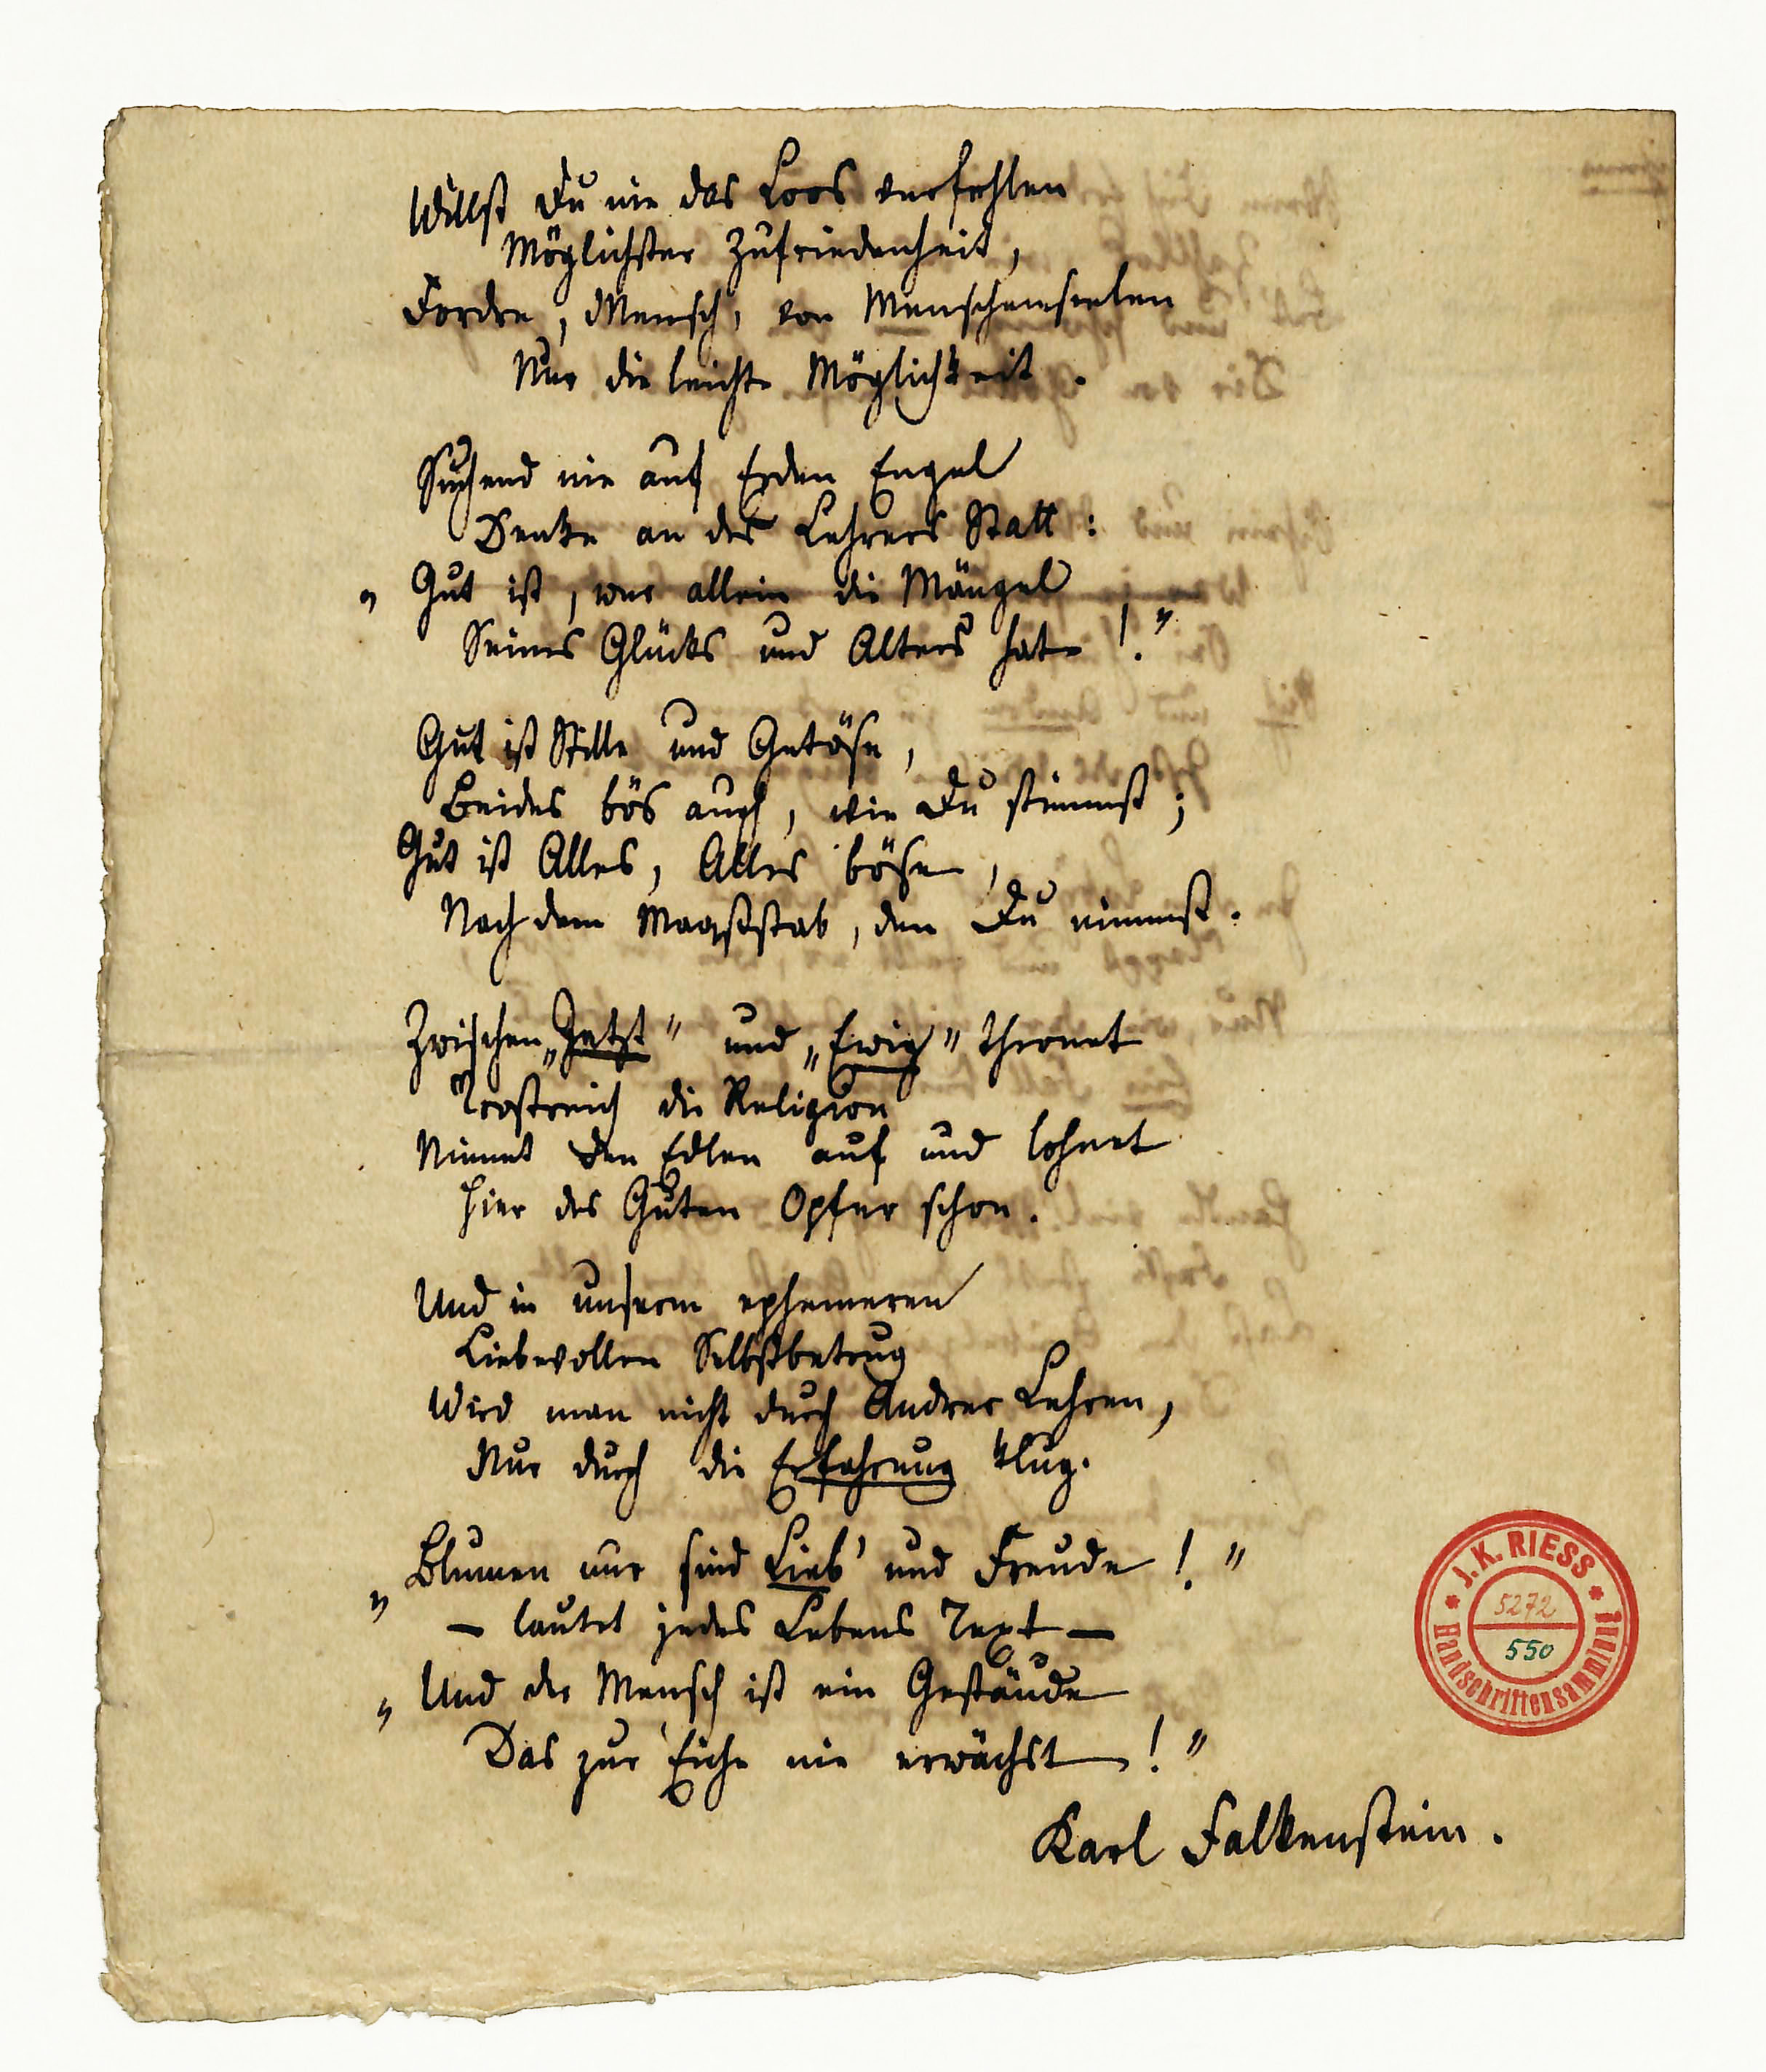 Willst Du nie das Loos verfehlen
Möglichster Zufriedenheit,
Fordre, Mensch, von Menschenseelen
Nur die leichte Möglichkeit.
Suchend nie auf Erden Engel
Denke an des Lehrers Statt:
„Gut ist, wer allein die Mängel
Seines Glücks und Alters hat!"
Gut ist Stille und Getöse,
Beides bös auch, wie Du stimmst;
Gut ist Alles, Alles böse,
Nach dem Maaßstab, den Du nimmst.
Zwischen „Jetzt" und „Ewig" thronet
Trostreich die Religion
Nimmt den Edlen auf und lohnet
Hier des Guten Opfer schon.
Und in unserm ephemeren
Liebevollen Selbstbetrug
Wird man nicht durch Andrer Lehren,
Nur durch die Erfahrung klug.
„Blumen nur sind Lieb' und Freude!"
– lautet jedes Lebens Text –
„Und der Mensch ist ein Gestäude
Das zur Eiche nie erwächst!"
Karl Falkenstein.
J. K. RIESS
5272
550
Handschriftensammlung